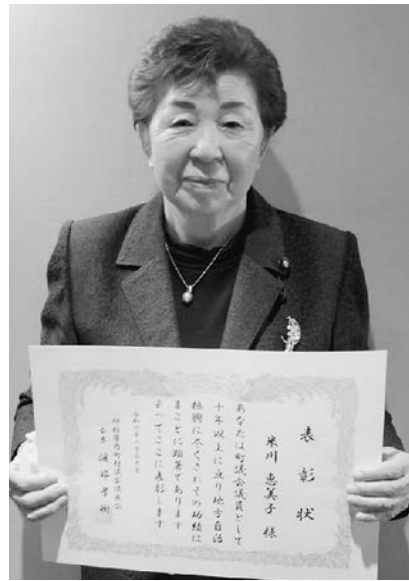 表彰状
米川 恵美子 様
あなたは町議会議員として
十年以上に亘り地方自治
振興に尽くされその功績は
まことに顕著であります
よってここに表彰します